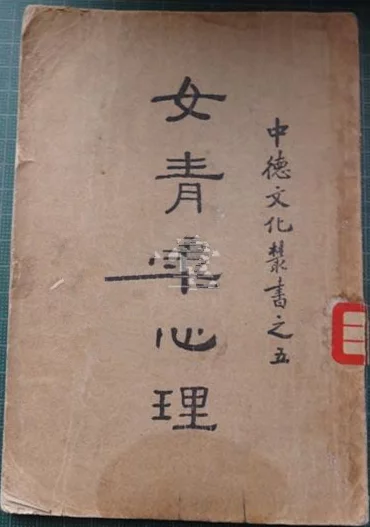 中德文化叢書之五
女青年心理